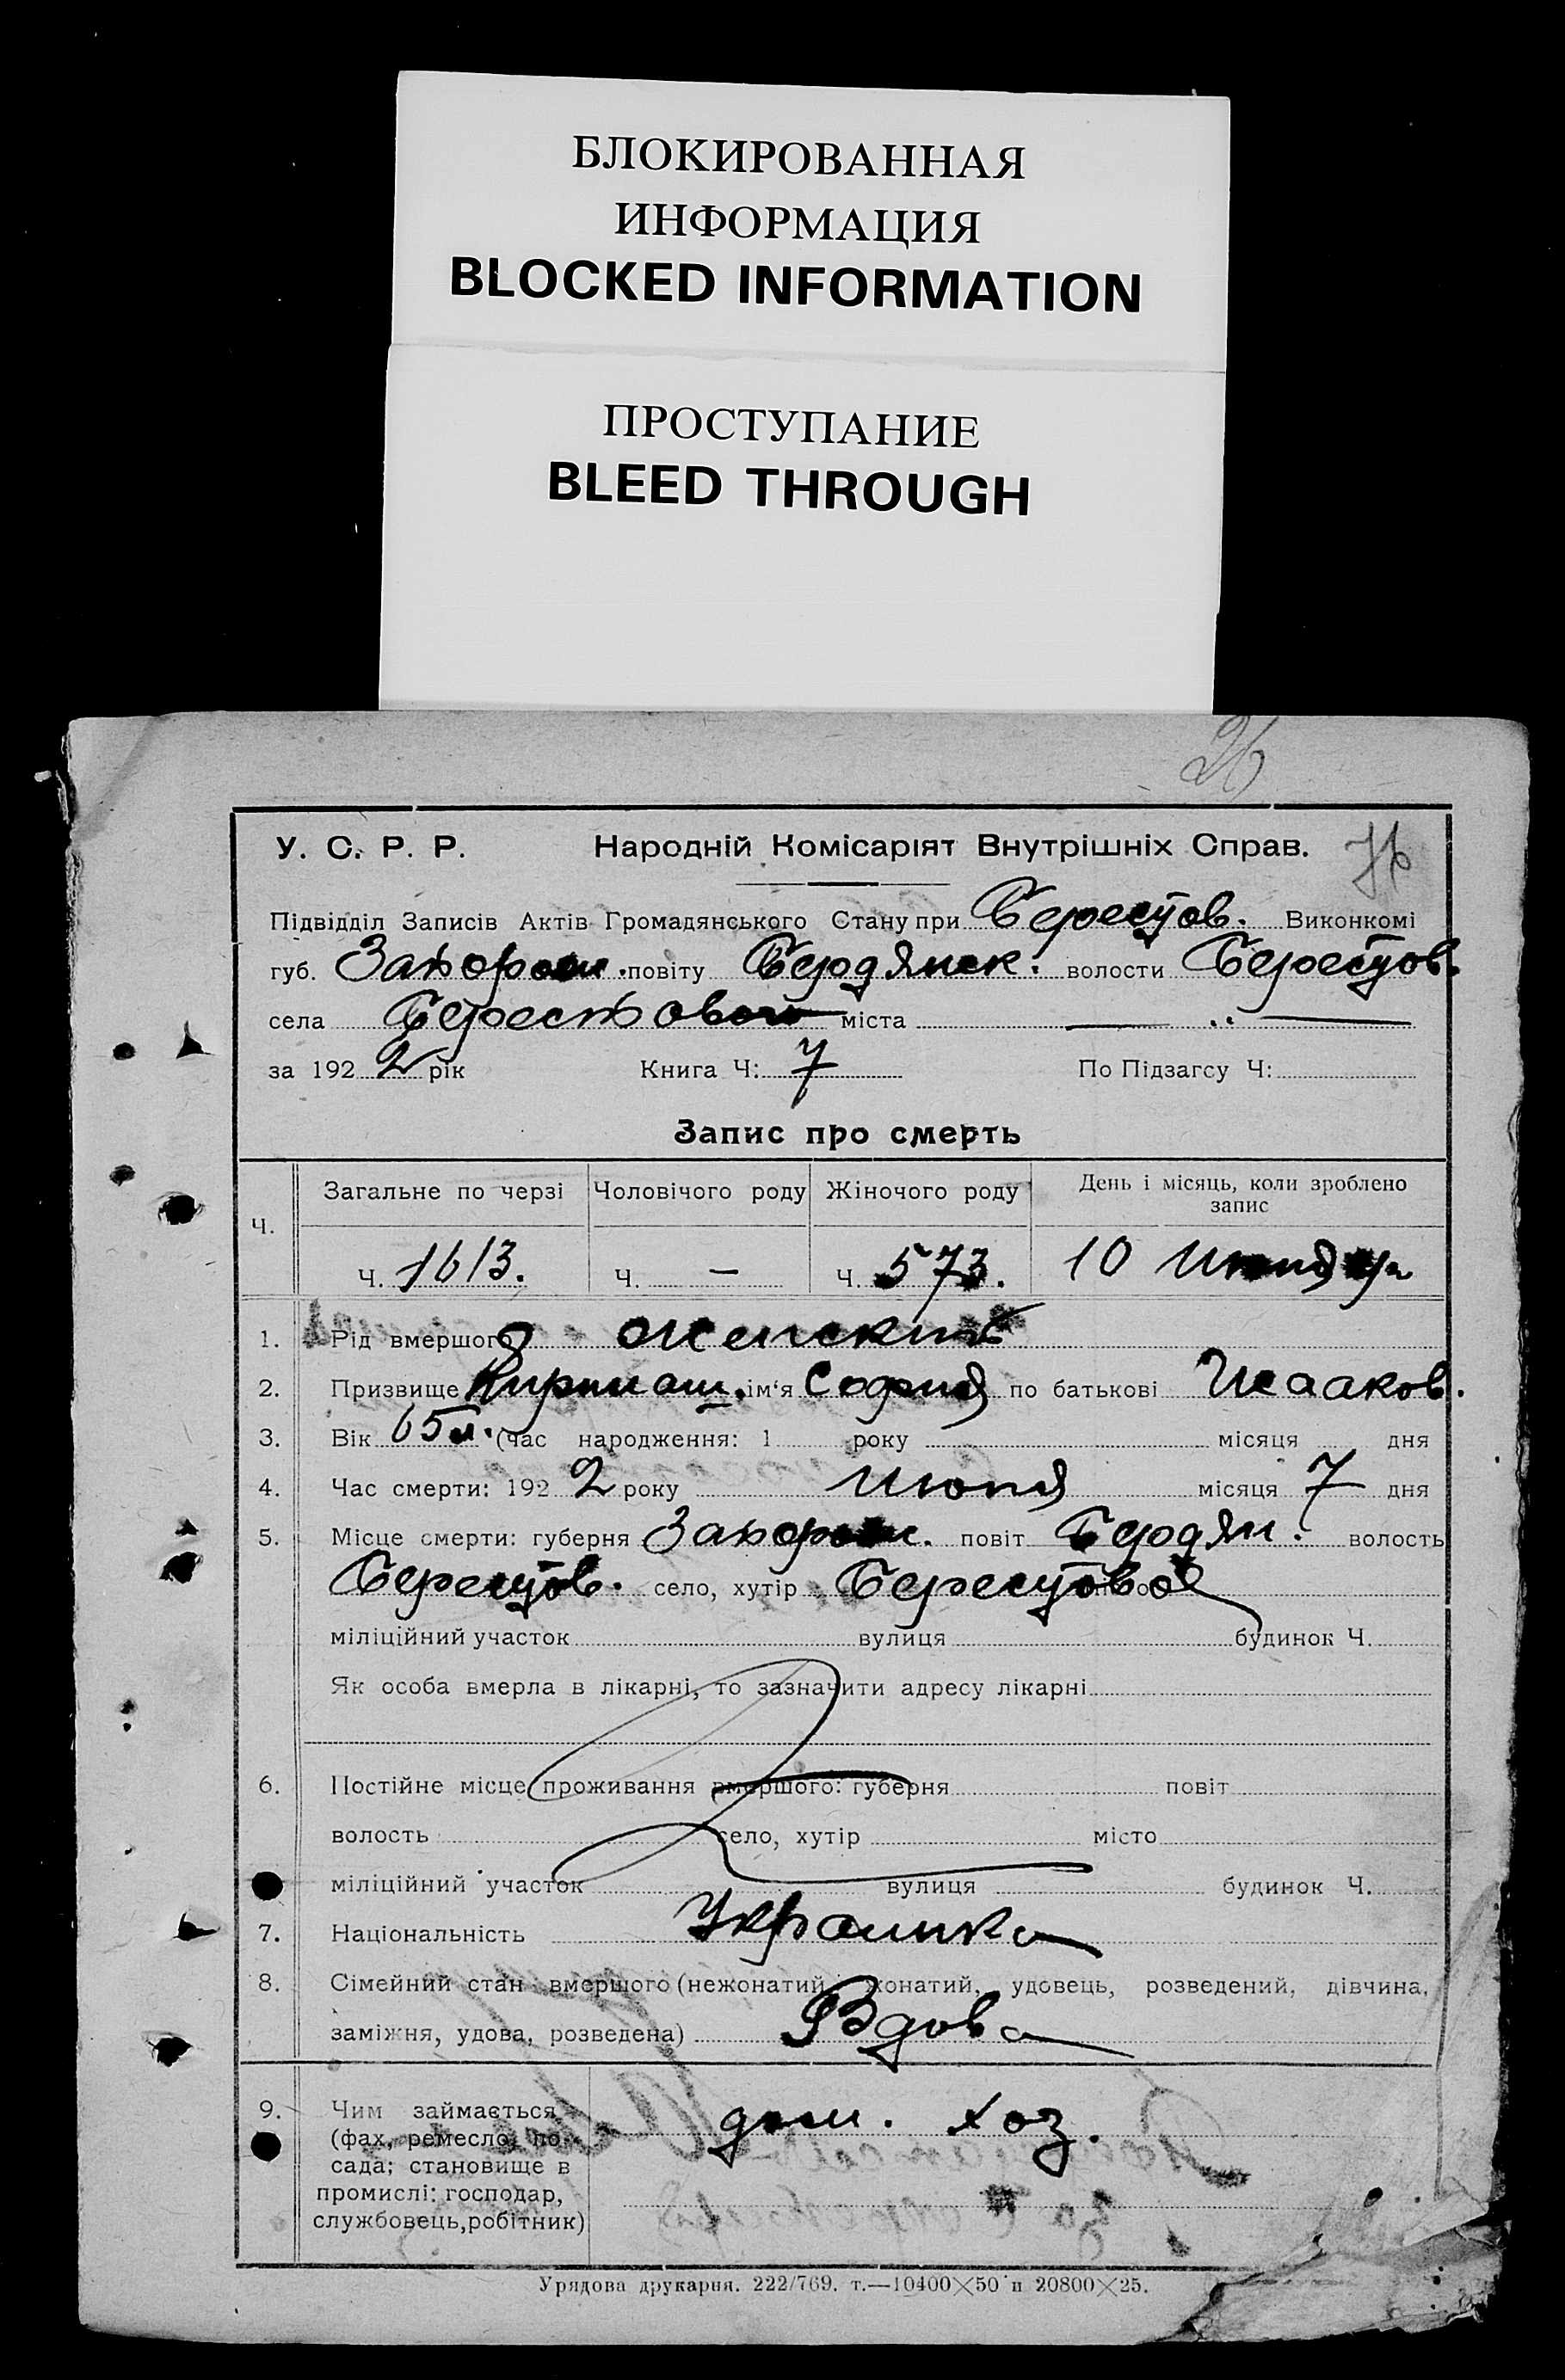 БЛОКИРОВАННАЯ
ИНФОРМАЦИЯ
BLOCKED INFORMATION
ПРОСТУПАНИЕ
BLEED THROUGH
26
У. С. Р. Р. Народній Комісаріят Внутрішніх Справ. 76
Підвідділ Записів Актів Громадянського Стану при Берестов. Виконкомі
губ. Запорож. повіту Бердянск. волости Берестов.
села Берестового міста —
за 192 2 рік Книга Ч: 7 По Підзагсу Ч:
Запис про смерть
Ч. Загальне по черзі Чоловічого роду Жіночого роду День і місяць, коли зроблено запис
Ч. 1613. Ч. — Ч. 573. 10
1. Рід вмершого женский
2. Призвище ім‘я София по батькові Исааков.
3. Вік 65 л. (час народження: 1 року місяця дня
4. Час смерти: 192 2 року июля місяця 7 дня
5. Місце смерти: губерня Запорож. повіт Бердян. волость
Берестов. село, хутір Берестовое
міліційний участок вулиця будинок Ч.
Як особа вмерла в лікарні, то зазначити адресу лікарні
6. Постійне місце проживання вмершого: губерня повіт
волость село, хутір місто
міліційний участок вулиця будинок Ч.
7. Національність Украинка
8. Сімейний стан вмершого (нежонатий, жонатий, удовець, розведений, дівчина,
заміжня, удова, розведена) Вдова
9. Чим займається дом. хоз.
(фах, ремесло, по-
сада; становище в
промислі: господар,
службовець, робітник)
Урядова друкарня. 222/769. т.—10400×50 и 20800×25.